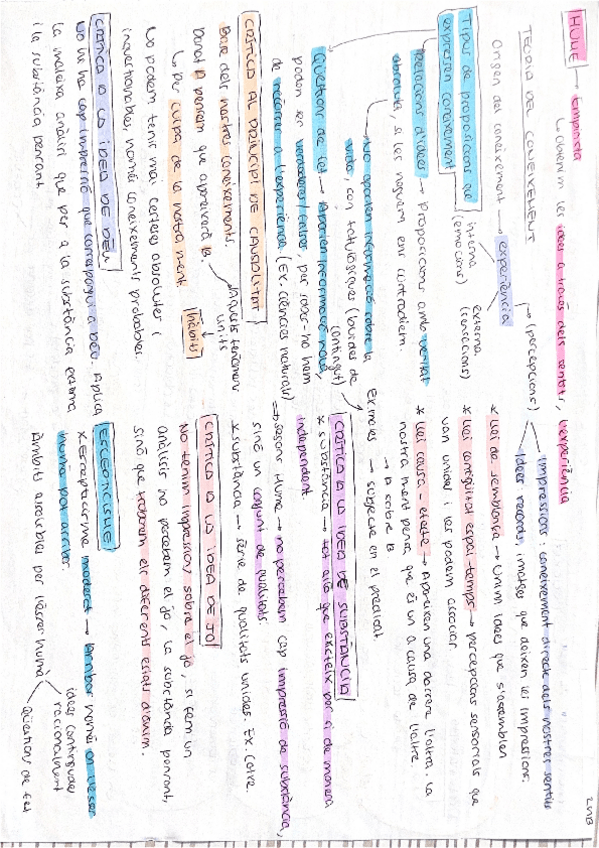 2NB
HUME → empirista
↳ Obtenim les idees a través dels sentits, l'experiència
TEORIA DEL CONEIXEMENT
Origen del coneixement → experiència → (percepcions)
Impressions: coneixement directe dels nostres sentits
Idees: records, imatges que deixen les impressions.
interna (emocions)
externa (sensacions)
* Llei de semblança → Unim idees que s'assemblen
* Llei contigüitat espai-temps → percepcions sensorials que
van unides i les podem associar
* Llei causa - efecte → Apareixen una darrere l'altra. La
nostra ment pensa que és un a causa de l'altre.
Tipus de proposicions que
expressen coneixement
Relacions d'idees → Proposicions amb veritat
absoluta, si les neguem ens contradiem.
↳ No aporten informació sobre la
vida, són tautològiques (buides de
contingut)
Ex: naves → subjecte en el predicat
→ A sobre B
Qüestions de fet → Aporten informació nova,
poden ser verdaderes / falses, per saber-ho hem
de recórrer a l'experiència (Ex. ciències naturals)
CRÍTICA AL PRINCIPI DE CAUSALITAT
Base dels nostres coneixements.
Donat A pensem que apareixerà B.
→ Aquests fenòmens
units
↳ per culpa de la nostra ment
Hàbits
No podem tenir mai certeses absolutes i
inqüestionables, només coneixements probables.
CRÍTICA A LA IDEA DE DÉU
No hi ha cap impressió que correspongui a Déu. Aplica
la mateixa anàlisi que per a la substància extensa
i la substància pensant
CRÍTICA A LA IDEA DE SUBSTÀNCIA
* substància → tot allò que existeix per si de manera
independent.
→ segons Hume → no percebem cap impressió de substància,
sinó un conjunt de qualitats.
* substància → sèrie de qualitats unides. Ex. Cotxe
CRÍTICA A LA IDEA DE JO
No tenim impressions sobre el jo, si fem un
anàlisis no percebem el jo, la substància pensant,
sinó que trobarem els diferents estats d'ànim.
ESCEPTICISME
* Escepticisme moderat → Àmbar només on l'ésser
humà pot arribar.
Àmbits assolibles per l'ésser humà
idees contingudes
racionalment
Qüestions de fet